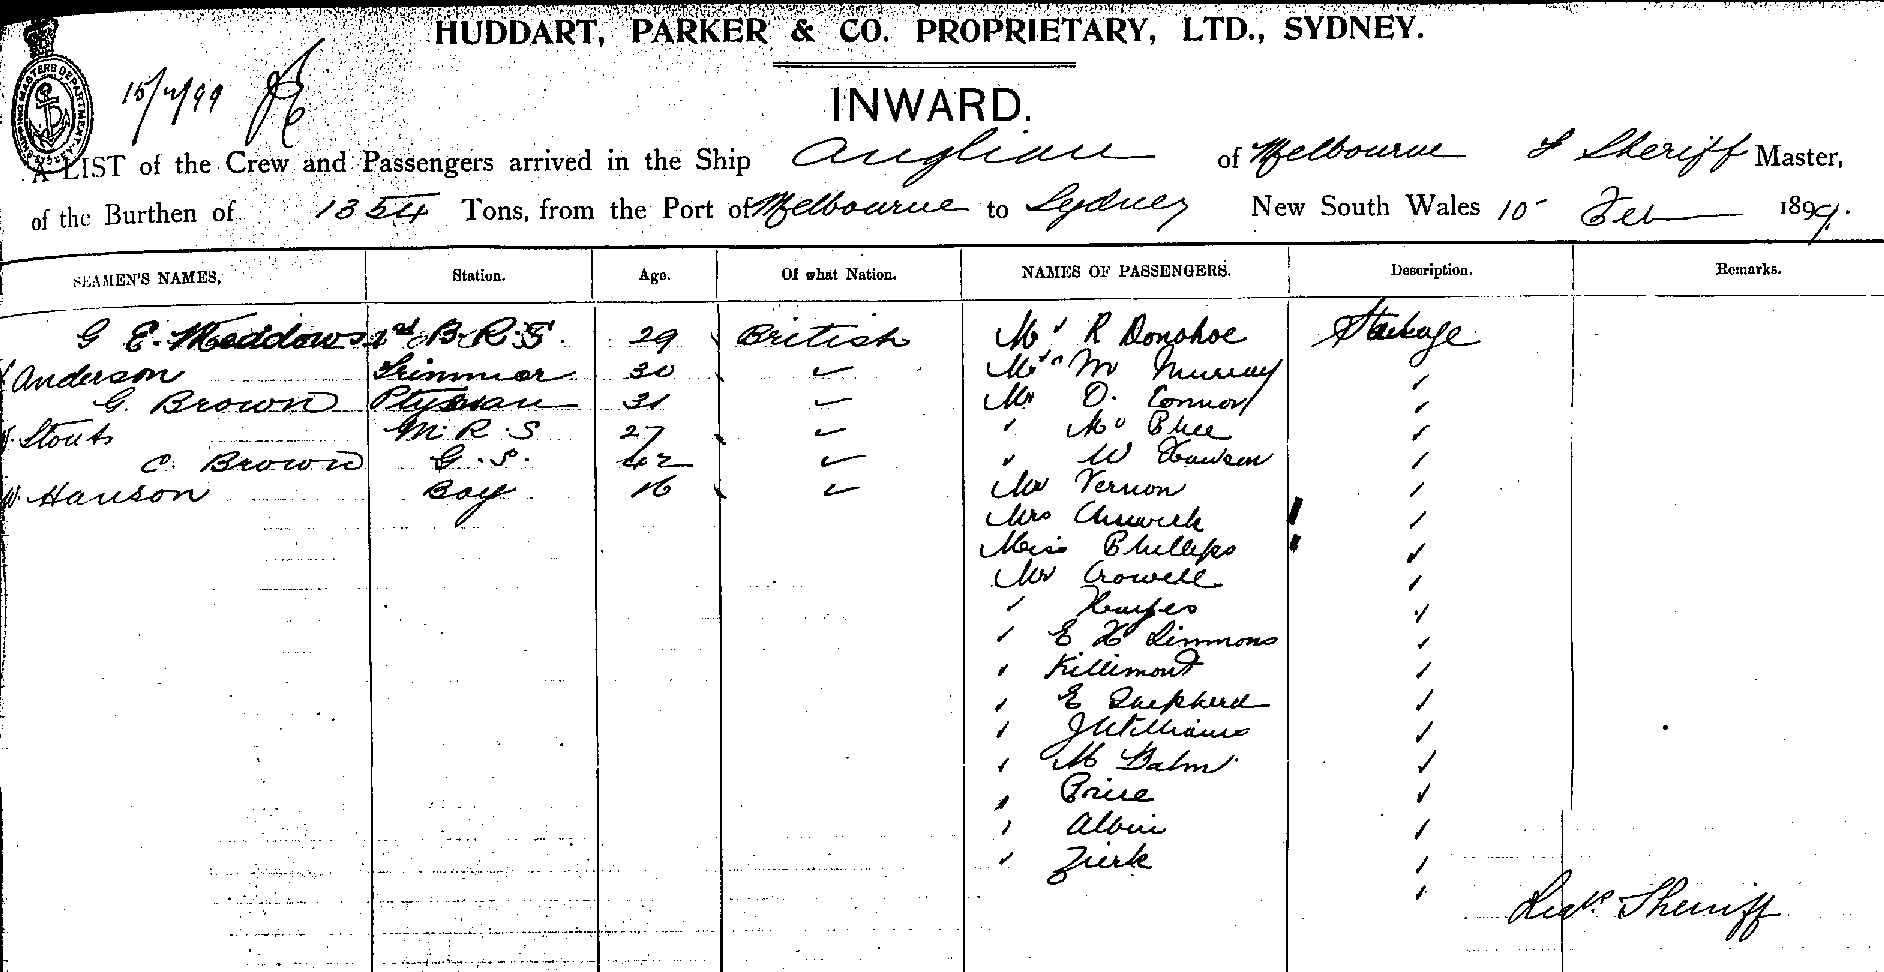 HUDDART, PARKER & CO. PROPRIETARY, LTD., SYDNEY.
15/2/99
INWARD.
A LIST of the Crew and Passengers arrived in the Ship Anglian of Melbourne L Sheriff Master,
of the Burthen of 1354 Tons, from the Port of Melbourne to Sydney New South Wales 15 Feb 1899.
SEAMEN'S NAMES, Station. Age. Of what Nation. NAMES OF PASSENGERS. Description. Remarks.
G E. Meddows 2nd B. R. S. 29 British Mr R Donohoe Steerage
Anderson Trimmer 30 ✓ Mrs M Murray ✓
G. Brown Ptyman 31 ✓ Mr O. Connor ✓
Stouts M. R. S 27 ✓ " Mc Phee ✓
C. Brown G. S. 42 ✓ " W Hawson ✓
W. Hanson Boy 16 ✓ Mr Vernon ✓
Mrs ✓
Miss Phillips ✓
Mr Crowell ✓
" Hayes ✓
" E H Simmons ✓
" Killimont ✓
" E Shepherd ✓
" J Williams ✓
" M Balm ✓
" Price ✓
" Albin ✓
" Zierk ✓
✓
Sherriff